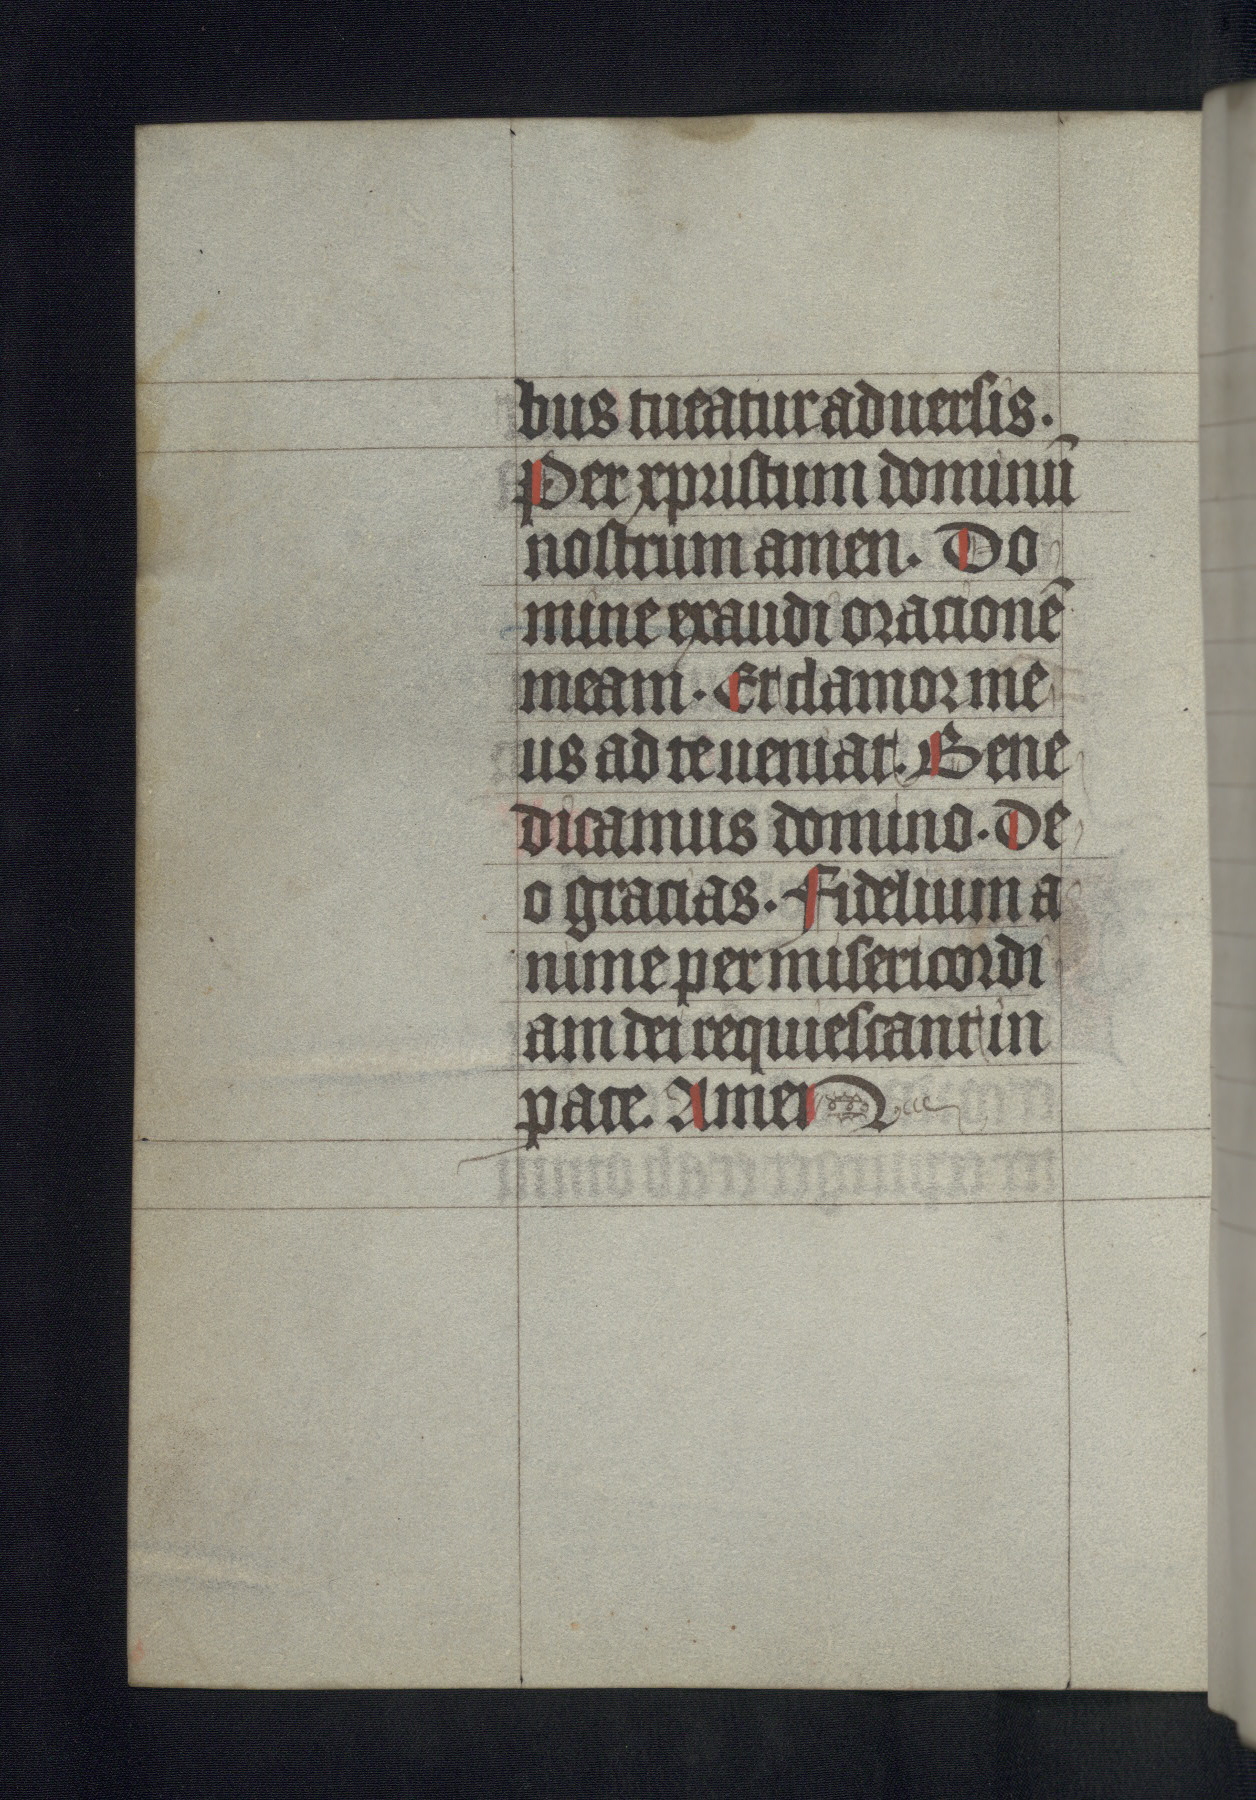 bus tueatur aduersis.
Per xpristum dominū
nostrum amen. Do
mine exaudi oracionē
meam. Et clamor me
us ad te ueniat. Bene
dicamus domino. De
o gracias. Fidelium a
nime per misericordi
am dei requiescant in
pace. Amen